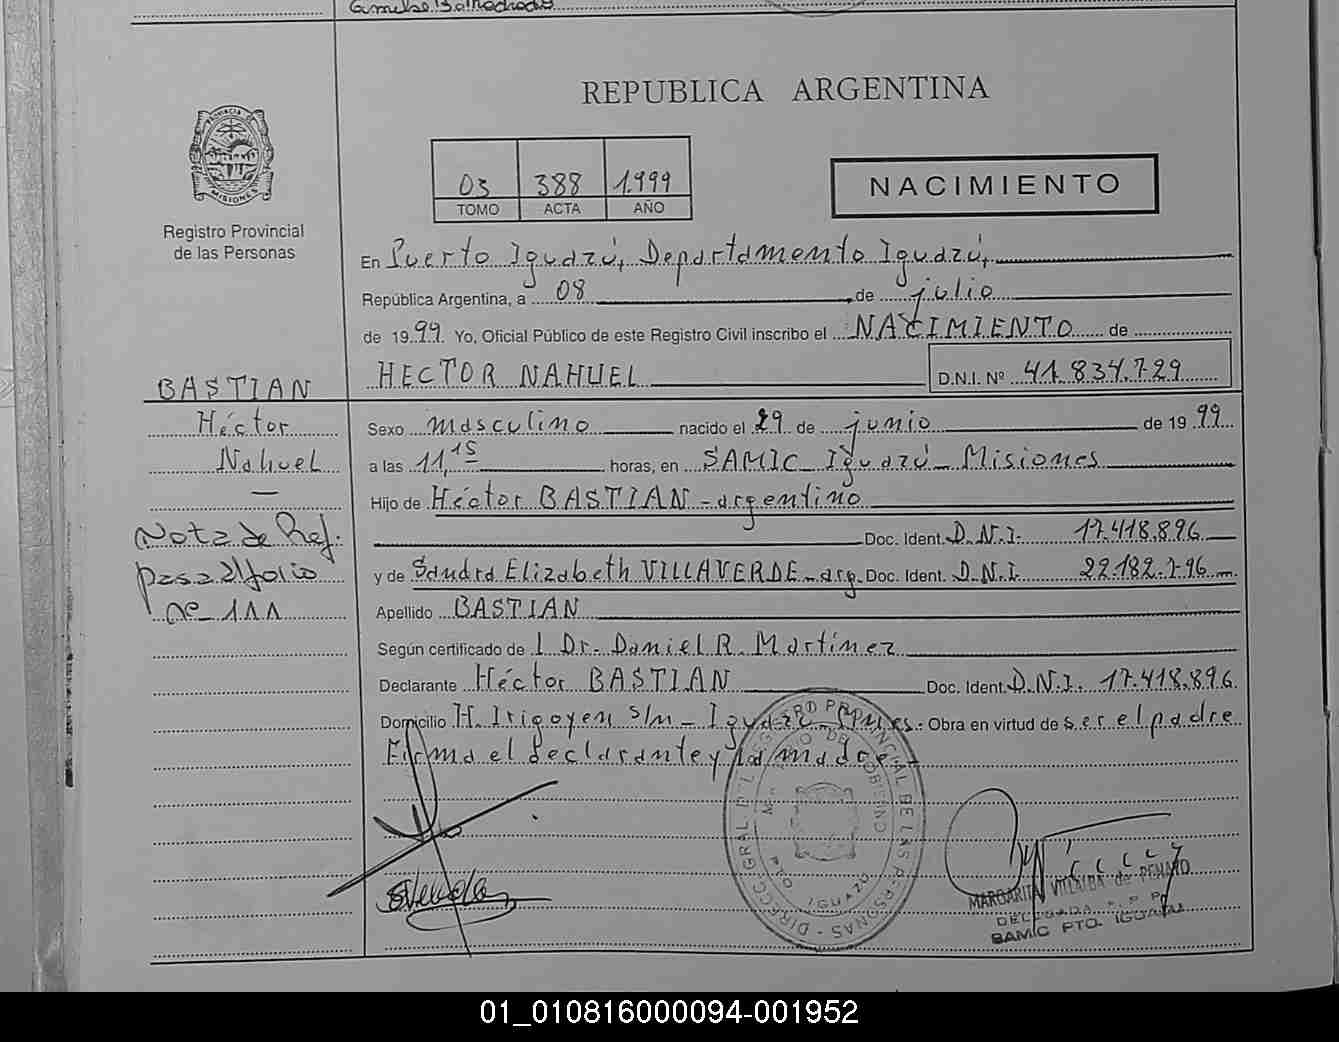 REPUBLICA ARGENTINA
PROVINCIA DE
MISIONES
Registro Provincial
de las Personas
03 388 1.999
TOMO ACTA AÑO
NACIMIENTO
En Puerto Iguazú, Departamento Iguazú,
República Argentina, a 08 de julio
de 1999. Yo, Oficial Público de este Registro Civil inscribo el NACIMIENTO de
HECTOR NAHUEL D.N.I. Nº 41.834.729
BASTIAN
Héctor
Nahuel
Nota de Ref.
pasa al folio
nº 111
Sexo masculino nacido el 29 de junio de 1999
a las 11,15 horas, en SAMIC Iguazú - Misiones
Hijo de Héctor BASTIAN - argentino
Doc. Ident. D.N.I. 17.418.896
y de Sandra Elizabeth VILLAVERDE - arg. Doc. Ident. D.N.I. 22.182.796
Apellido BASTIAN
Según certificado de 1 Dr. Daniel R. Martínez
Declarante Héctor BASTIAN Doc. Ident. D.N.I. 17.418.896
Domicilio H. Irigoyen s/n - Iguazú - Mnes. Obra en virtud de ser el padre
Firma el declarante y la madre -
DIREC. GRAL. DEL REGISTRO PROVINCIAL DE LAS PERSONAS
IGUAZU
MARGARITA VILLALBA de PENAYO
DELEGADA R. P. P.
SAMIC PTO. IGUAZU
01_010816000094-001952